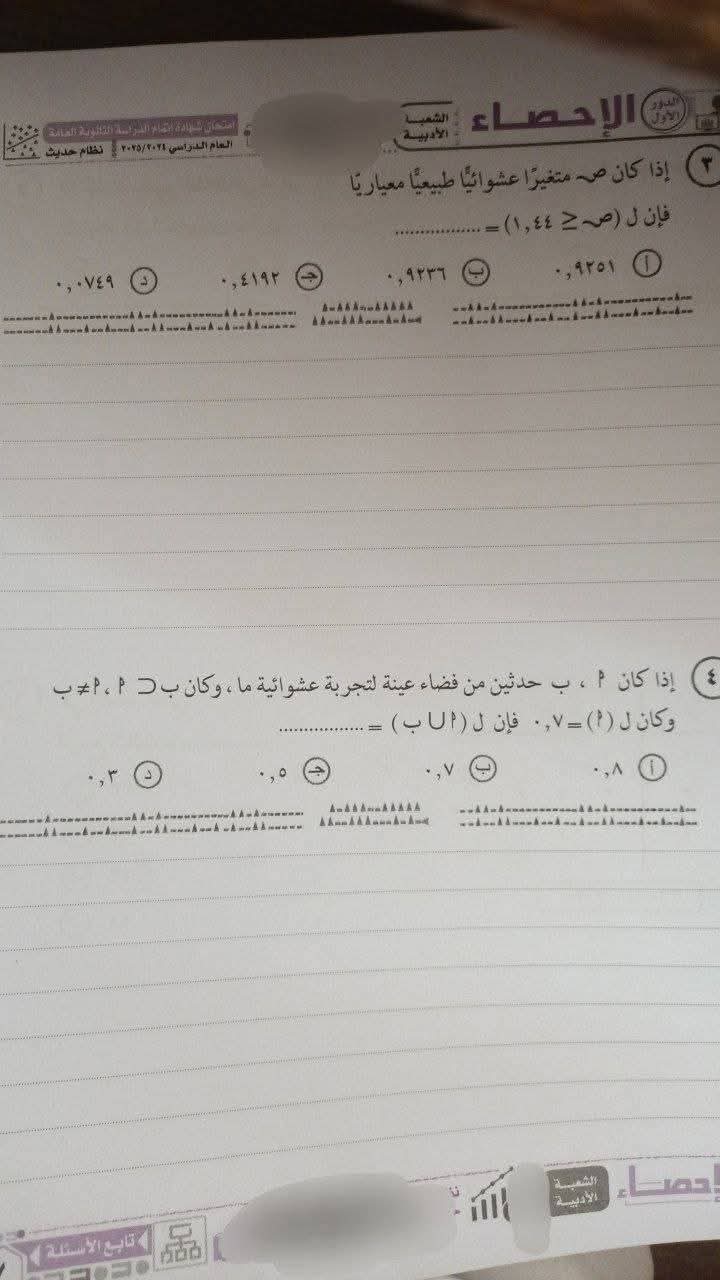 الدور الأول
الإحصاء
الشعبة الأدبية
امتحان شهادة إتمام الدراسة الثانوية العامة
العام الدراسي ٢٠٢٥/٢٠٢٤ نظام حديث
٣ إذا كان ص متغيرًا عشوائيًّا طبيعيًّا معياريًّا
فإن ل (ص ≥ ١,٤٤) = .................
أ ٠,٩٢٥١ ب ٠,٩٢٣٦ ج ٠,٤١٩٢ د ٠,٠٧٤٩
٤ إذا كان ا ، ب حدثين من فضاء عينة لتجربة عشوائية ما ، وكان ب ⊂ ا ، ا ≠ ب
وكان ل (ا) = ٠,٧ فإن ل (ا ∪ ب) = .................
أ ٠,٨ ب ٠,٧ ج ٠,٥ د ٠,٣
الإحصاء
الشعبة الأدبية
تابع الأسئلة